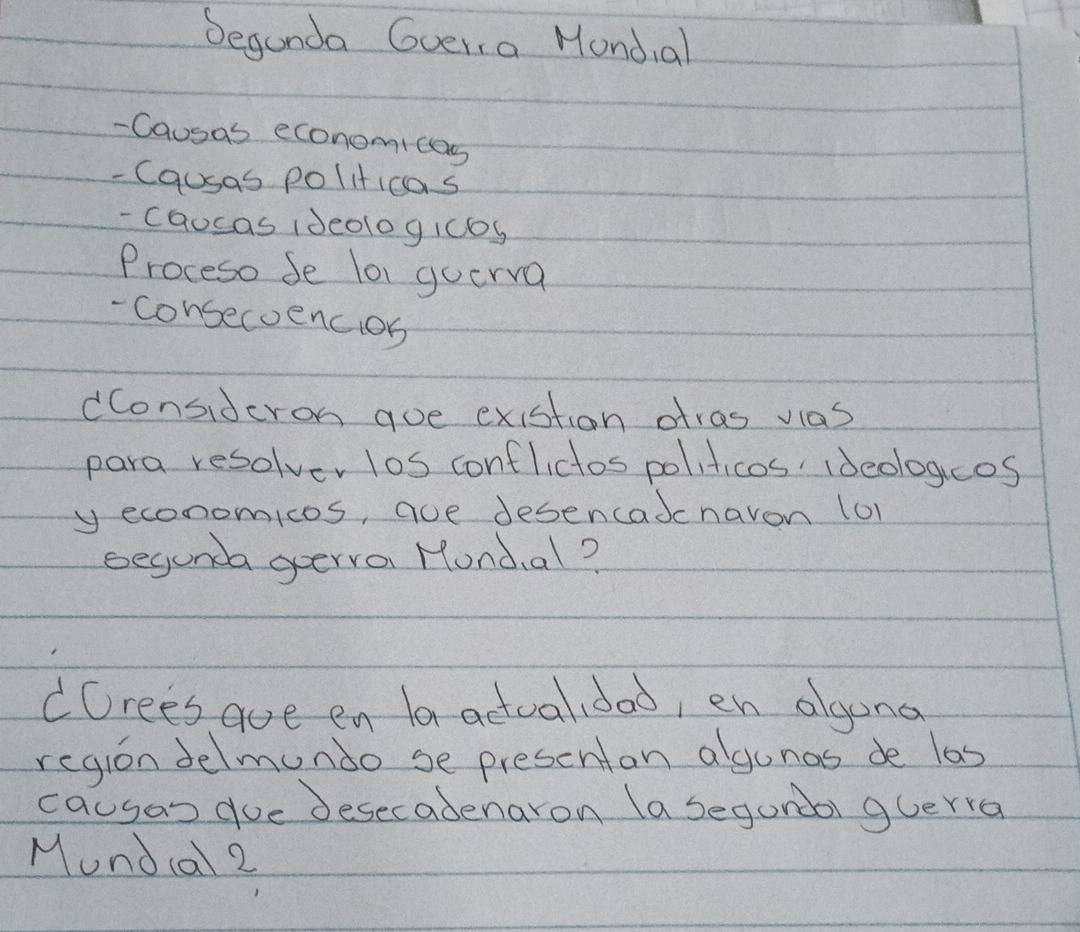 Segunda Guerra Mundial
-Causas economicas
-Causas politicas
-caucas ideologicos
Proceso de la guerra
-Consecuencias
¿Consideran que existian otras vias
para resolver los conflictos politicos, ideologicos
y economicos, que desencadenaron la
segunda guerra Mundial?
¿Creés que en la actualidad, en alguna
región del mundo se presentan algunas de las
causas que desecadenaron la segunda guerra
Mundial?